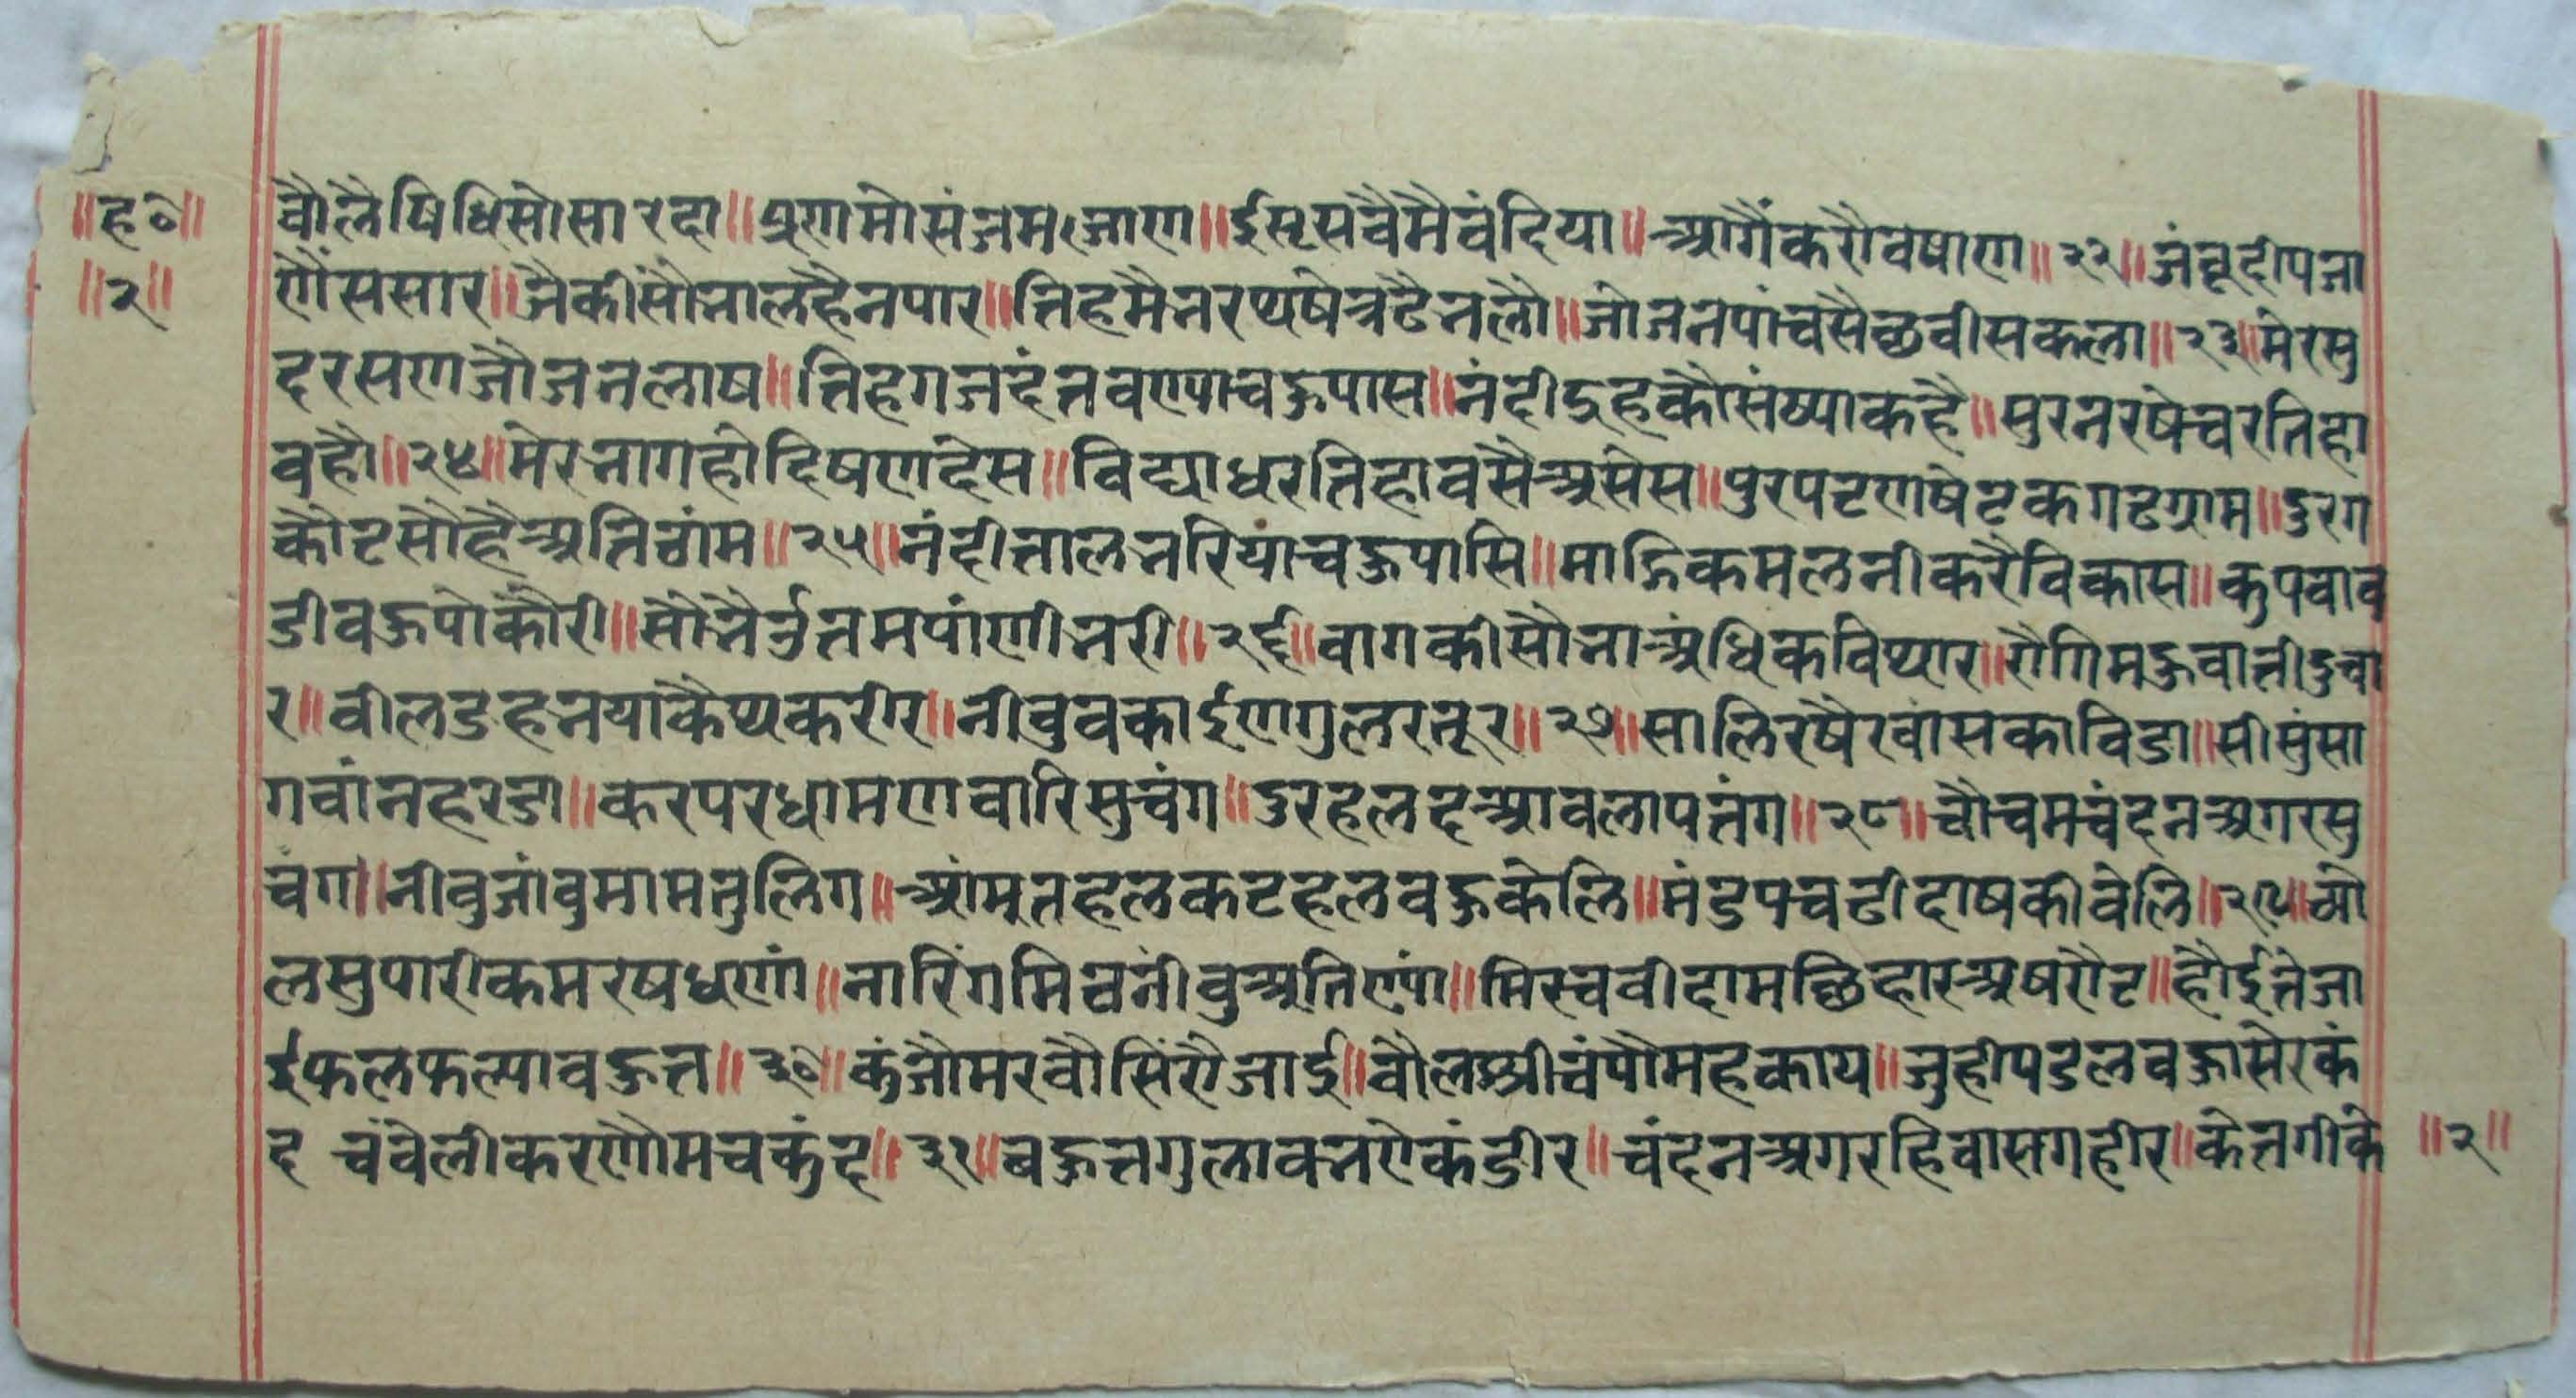 ॥ह०॥ वौलैषिधिसोसारदा॥प्रणमोसंजमजोण॥ईसृसवैमैवंदिया॥आगैंकरौवषाण॥२२॥जंबूदीपजा
॥२॥ णौंससार॥जैकीसौभालहैनपार॥तिहमैभरथषेत्रटैभलौ॥जोजनपांचसैछवीसकला॥२३॥मेरसु
दरसणजोजनलाष॥तिहगजदंतवण्याचऊपास॥नंदीदुहकौसंष्याकहै॥सुरनरषेचरतिहा
वहौ॥२४॥मेरभागहोदिषणदेस॥विद्याधरतिहावसैअसेस॥पुरपटणषेटकगटग्राम॥दुरग
कौटसोहैअतिठांम॥२५॥नंदीतालभरियांचऊपासि॥माहिकमलनीकरैविकास॥कुपवाव
डीवऊपोकौरी॥सोभैर्नुतमपांणीभरी॥२६॥वागकीसौभाअधिकविथार॥रौगिमऊवातीदुवा
र॥वीलडहभयाकैथकरीर॥नीवुवकाईणगुलरतूर॥२७॥सालिरषैरवांसकाविडा॥सीसुंसा
गवांनहरडा॥करपरधामणवारिसुचंग॥डुरहलदआवलापतंग॥२८॥चौचमचंदनअगरसु
चंग॥नीवुजांवुमामतुलिग॥आंमूतहलकटहलवऊकेलि॥मंडपचढीदाषकीवेलि॥२९॥षो
लसुपारीकमरषधणां॥नारिंगमिचनीवुअतिण्पां॥मिस्चवीदामछिहारअषरौट॥हौईतेजा
ईफलफल्यावऊत॥३०॥कंजौमरवौसिंरौजाई॥वौलश्रीचंपौमहकाय॥जुहीपडलवऊासेरकं
द चंवेलीकरणौमचकुंद॥३१॥बऊतगुलावनरौकंडीर॥चंदनअगरहिवासगहीर॥केतगीके ॥२॥